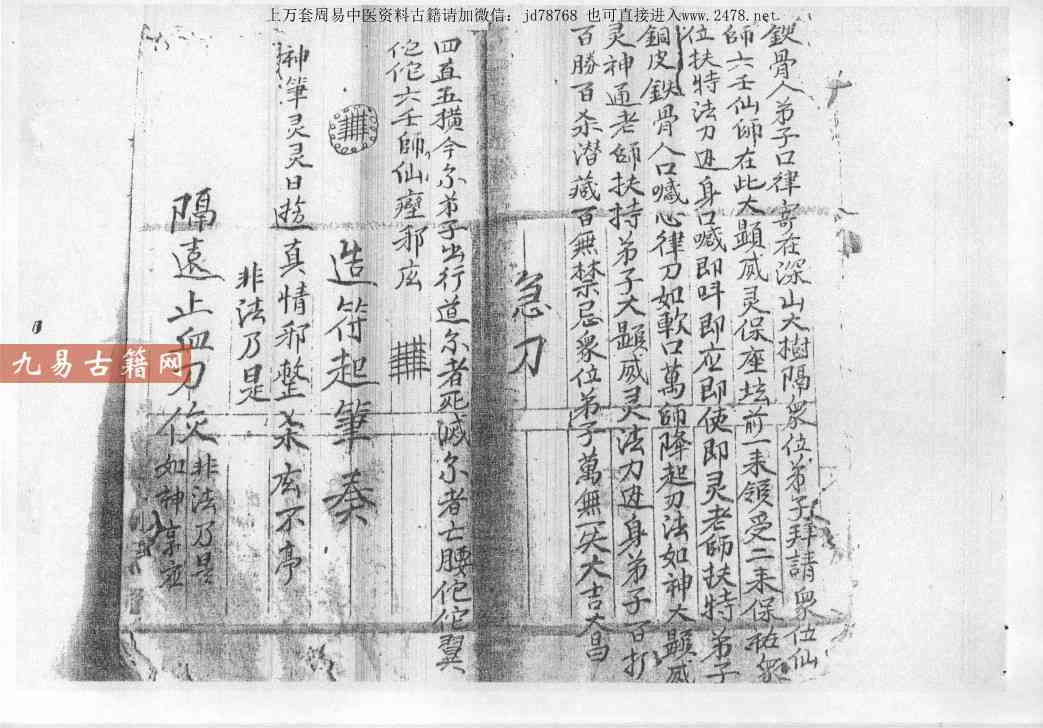 上万套周易中医资料古籍请加微信：jd78768 也可直接进入www.2478.net
鉄骨人弟子口律寄在深山大樹隔衆位弟子拜請衆位仙
師六壬仙師在此大顕威灵保座坛前一来領受二来保祐衆
位扶持法刀进身口喊即呌即应即使即灵老師扶持弟子
銅皮鉄骨人口喊心律刀如軟口萬師降起刀法如神大顕威
灵神通老師扶持弟子大顕威灵法力进身弟子百打
百勝百杀潜藏百無禁忌衆位弟子萬無一失大吉大昌
急刀
四直五横今尔弟子出行道尔者死滅尔者亡腰佗佗翼
佗佗六壬師仙 邪庅
造符起筆奏
神筆灵灵日遊真情邪整杀庅不亭
非法乃是
隔遠止血刀
非法乃是
如神
九易古籍网